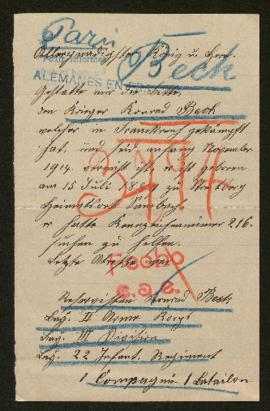 Paris
Beck
Allergnädigster König u. Herr.
ALEMANES EN
Gestatte mir die Bitte,
den Krieger Konrad Beck
welcher in Frankreich gekämpft
hat, und seit anfang November
1914 vermisst ist, ist geboren
am 15 Juli
Heimathort
er hatte Kennzeichennummer 216.
suchen zu helfen.
Letzte Adresse war
FECHO
Reservisten Konrad Beck
Bay. II Armee Korps
Bay. III Division
Bay. 22 Infant. Regiment
1 Compagnie 1 Batailon